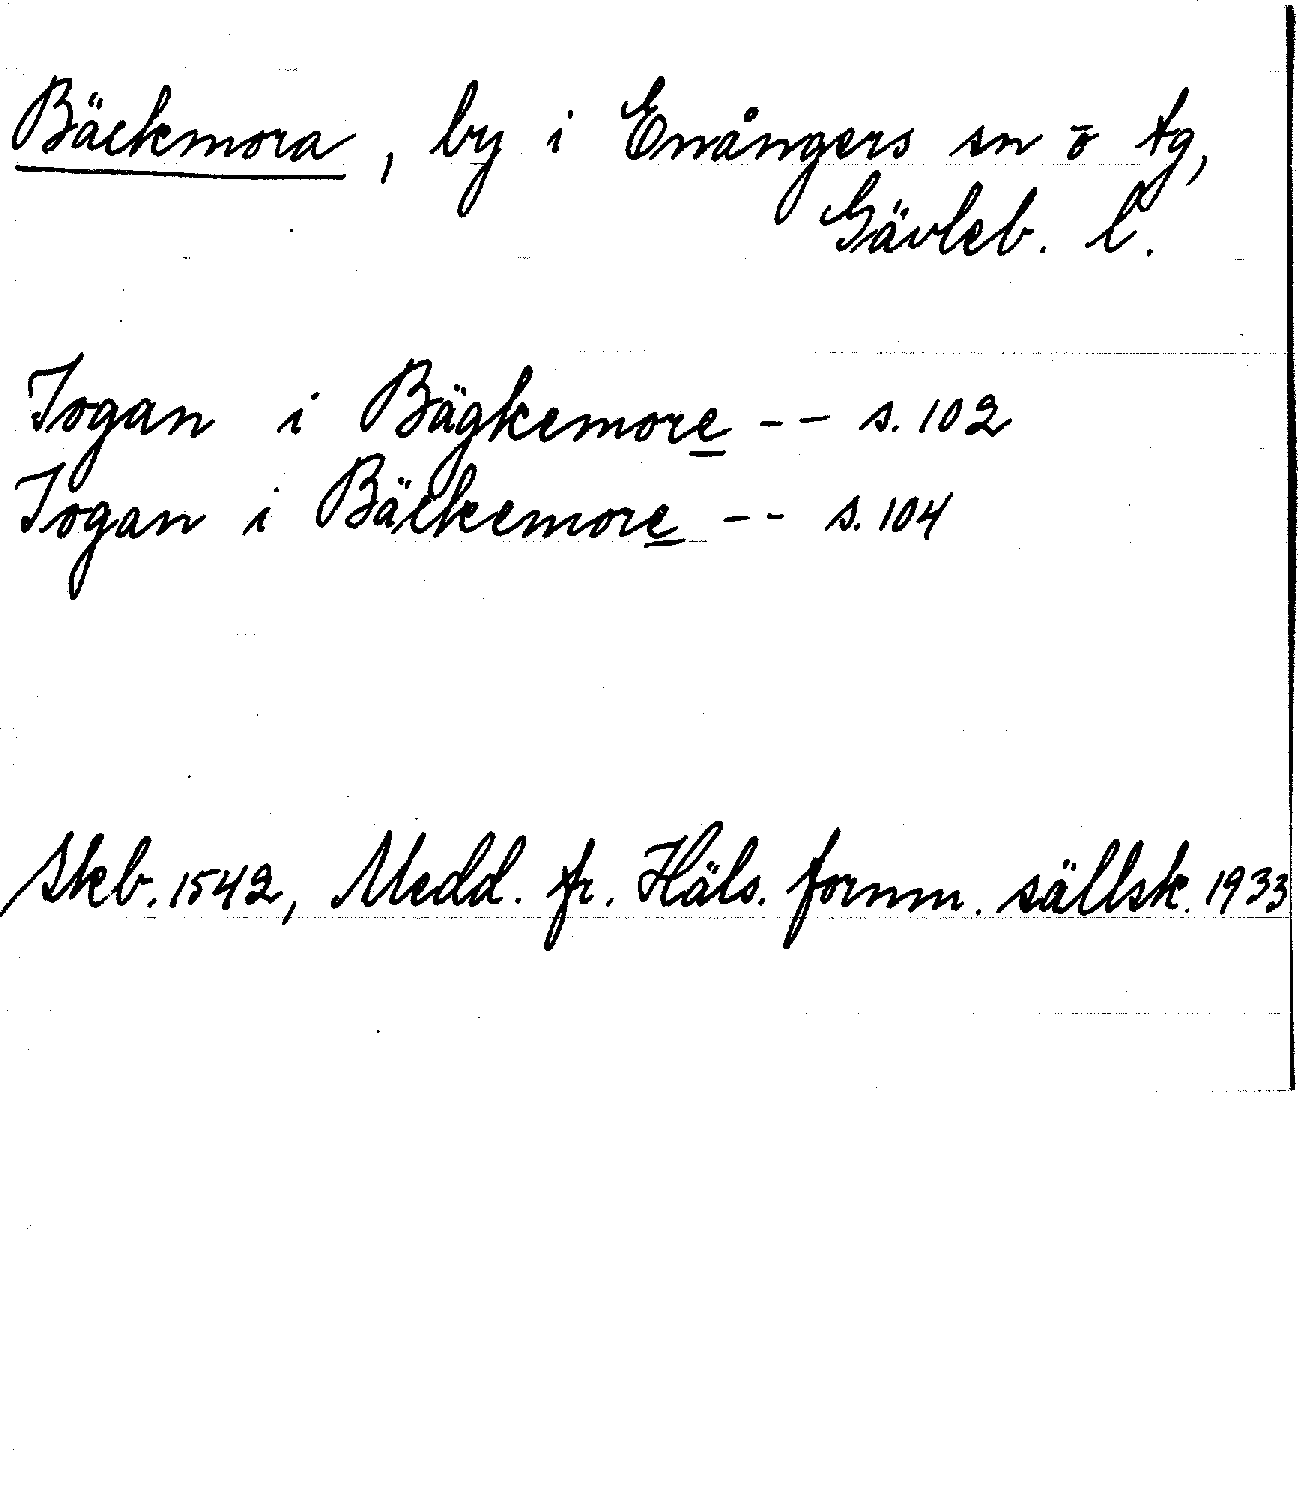 Bäckmora, by i Enångers sn o tg,
Gävleb. l.
Jogan i Bägkemore -- s. 102
Jogan i Bäckemore -- s. 104
Skb. 1542, Medd. fr. Häls. fornm. sällsk. 1933